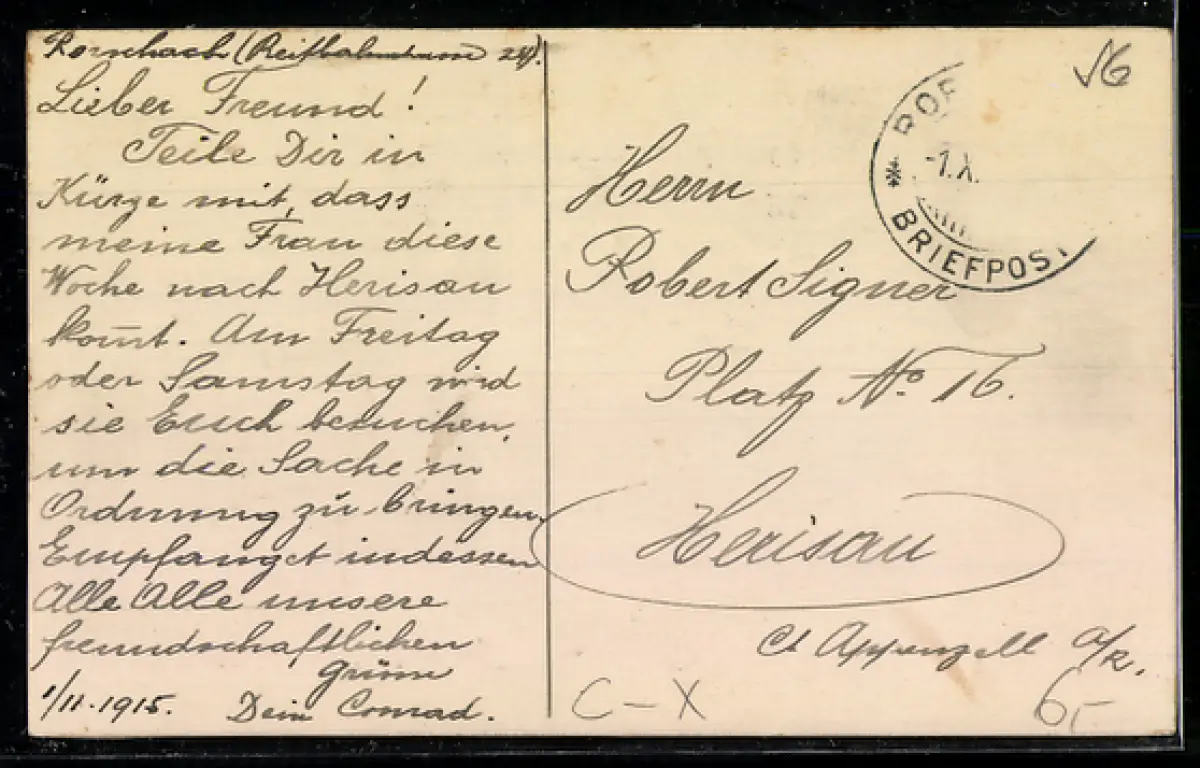 Rorschach (Reitbahnstrasse 24).
Lieber Freund!
Teile Dir in
Kürze mit, dass
meine Frau diese
Woche nach Herisau
kom̅t. Am Freitag
oder Samstag wird
sie Euch besuchen,
um die Sache in
Ordnung zu bringen.
Empfanget indessen
Alle Alle unsere
freundschaftlichen
Grüsse
1/11.1915. Dein Conrad.
56
ROR
-1.X
BRIEFPOST
Herrn
Robert Signer
Platz No. 16.
Herisau
Ct Appenzell A/R.
C-X
65-